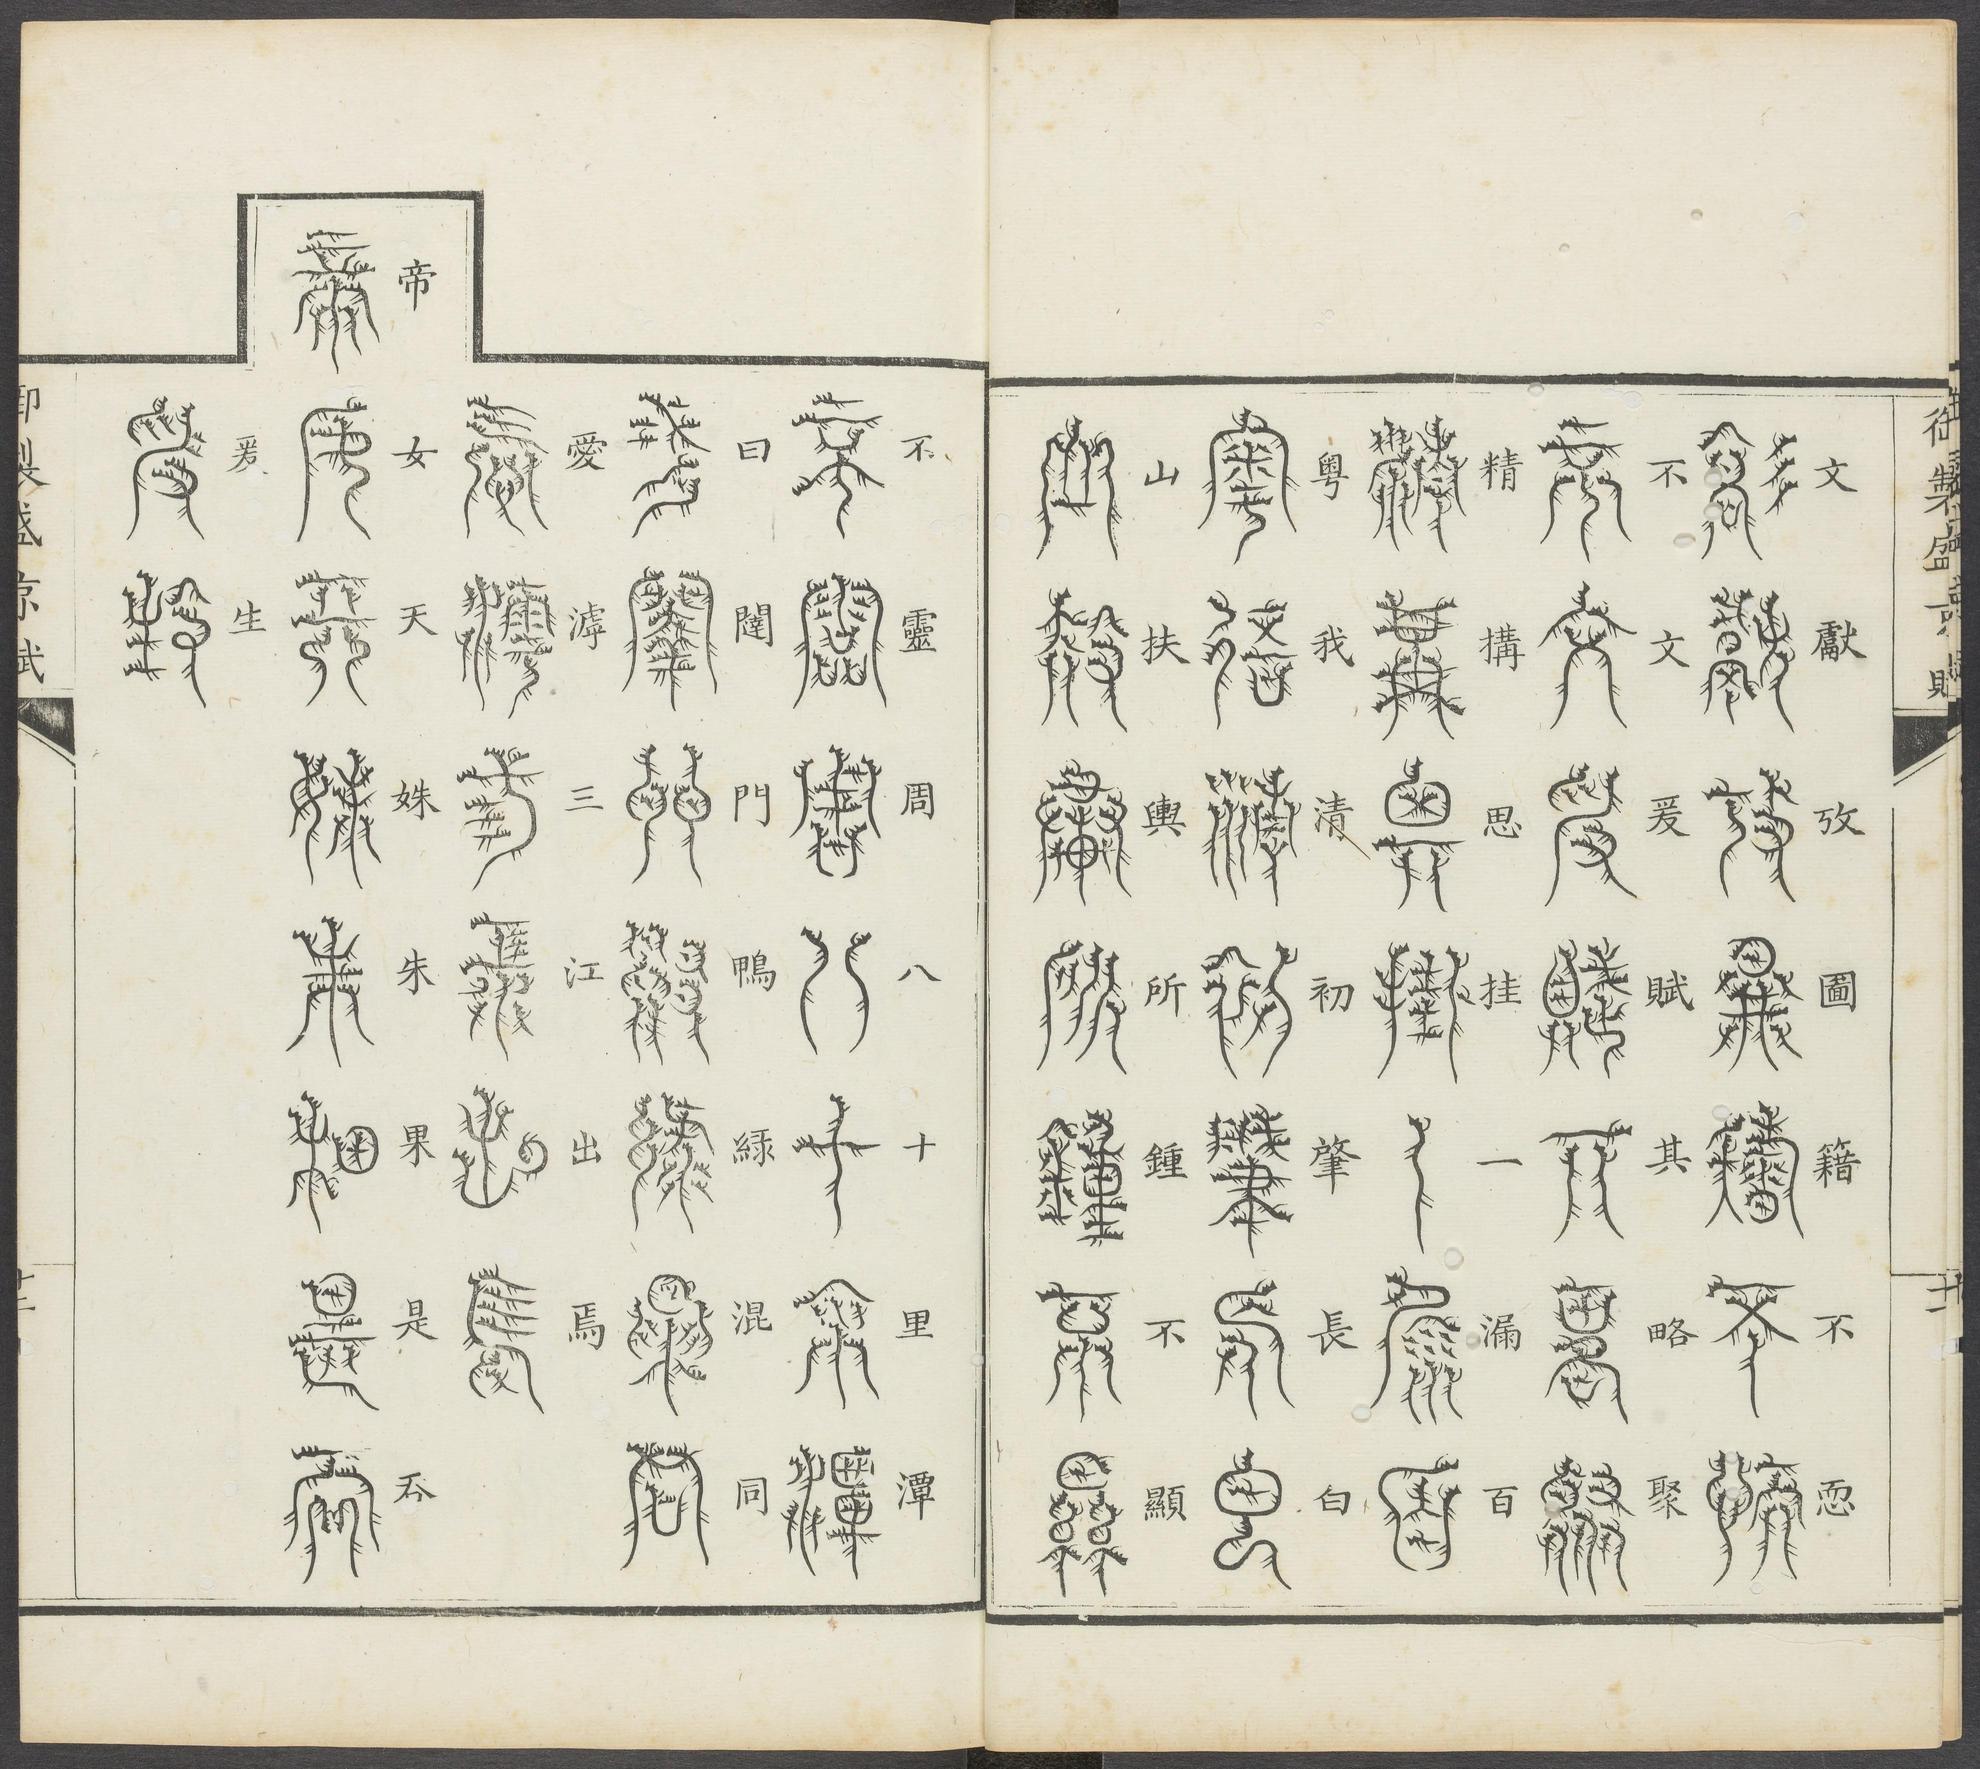 御製盛京賦
文獻攷圖籍不恧
不文爰賦其略聚
精搆思挂一漏百
粵我清初肇長白
山扶輿所鍾不顯
不靈周八十里潭
曰闥門鴨綠混同
愛滹三江出焉
帝
女天姝朱果是吞
爰生
御製盛京賦